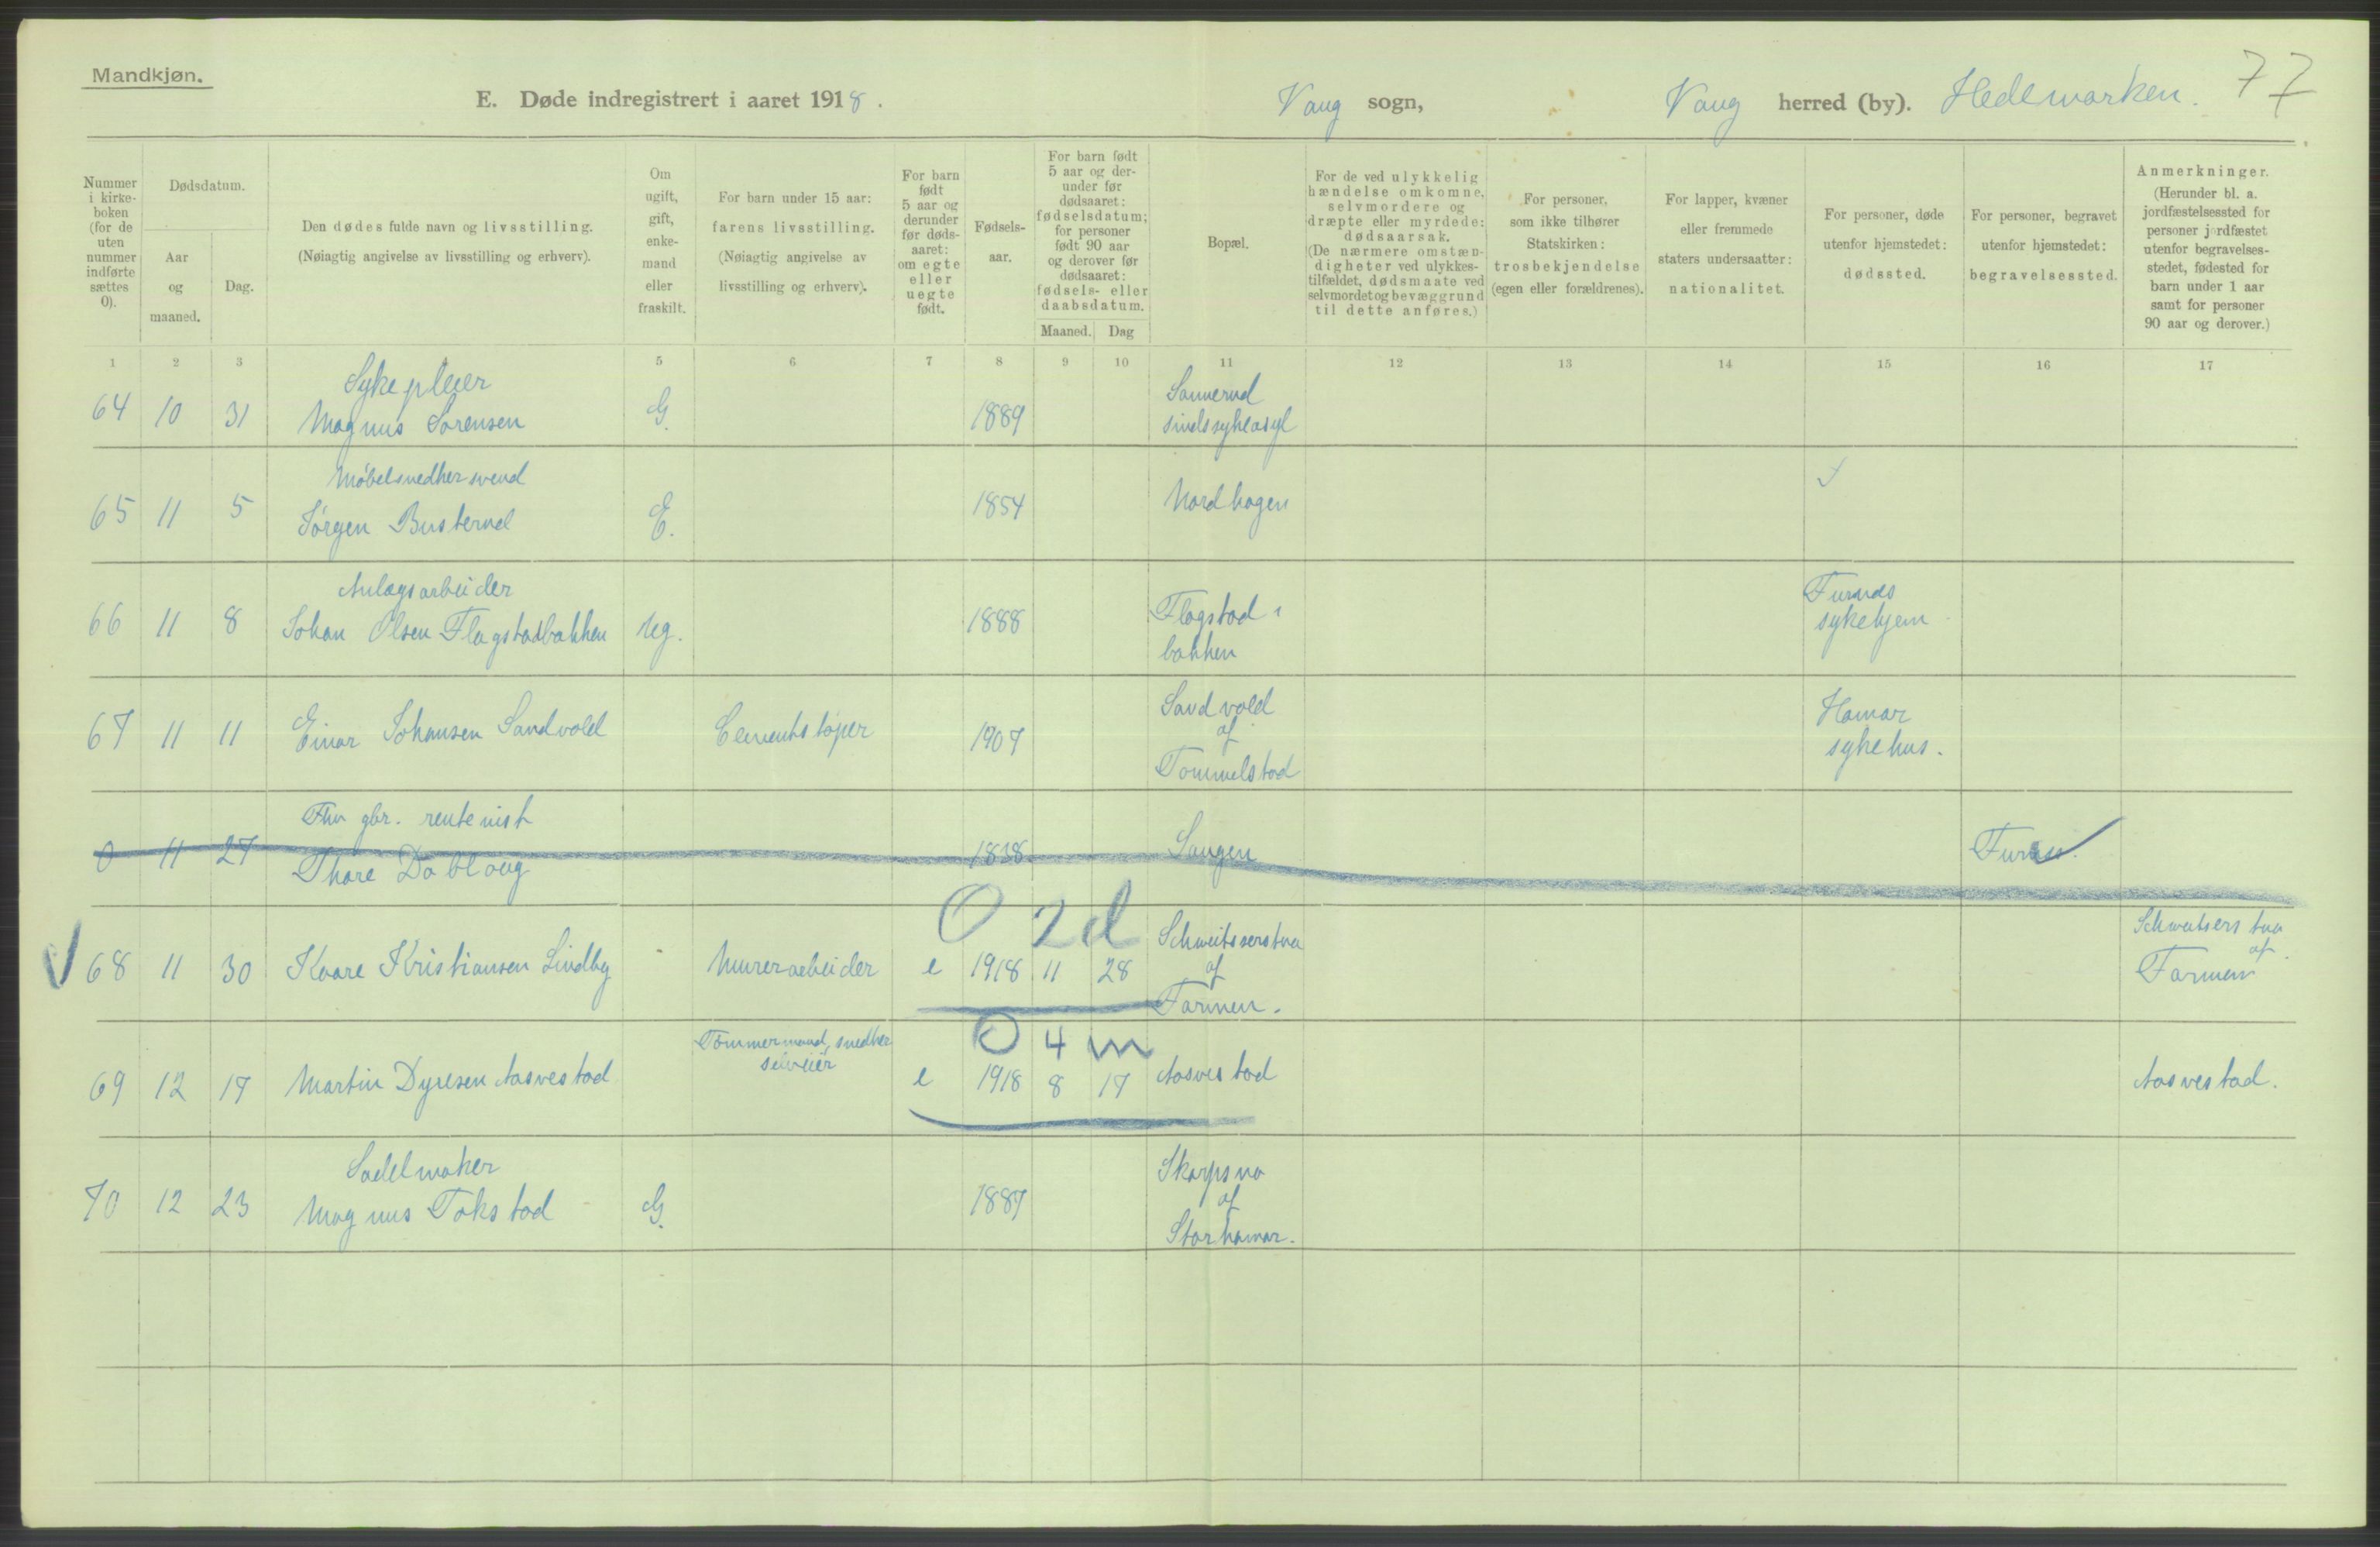 Mandkjøn.
77
E. Døde indregistrert i aaret 1918.
Vang sogn, Vang herred (by). Hedemarken.
Nummer i kirke-
boken
(for de
uten
nummer
indførte
sættes
0).
Dødsdatum.
Aar
og
maaned.
Dag.
Den dødes fulde navn og livsstilling.
(Nøiagtig angivelse av livsstilling og erhverv).
Om
ugift,
gift,
enke-
mand
eller
fraskilt.
For barn under 15 aar:
farens livsstilling.
(Nøiagtig angivelse av
livsstilling og erhverv).
For barn
født
5 aar og
derunder
før døds-
aaret:
om egte
eller
uegte
født.
Fødsels-
aar.
For barn født
5 aar og der-
under før
dødsaaret:
fødselsdatum;
for personer
født 90 aar
og derover før
dødsaaret:
fødsels- eller
daabsdatum.
Maaned. Dag
Bopæl.
For de ved ulykkelig
hændelse omkomne,
selvmordere og
dræpte eller myrdede:
dødsaarsak.
(De nærmere omstæn-
digheter ved ulykkes-
tilfældet, dødsmaate ved
selvmordet og bevæggrund
til dette anføres.)
For personer,
som ikke tilhører
Statskirken:
trosbekjendelse
(egen eller forældrenes).
For lapper, kvæner
eller fremmede
staters undersaatter:
nationalitet.
For personer, døde
utenfor hjemstedet:
dødssted.
For personer, begravet
utenfor hjemstedet:
begravelsessted.
Anmerkninger.
(Herunder bl. a.
jordfæstelsessted for
personer jordfæstet
utenfor begravelses-
stedet, fødested for
barn under 1 aar
samt for personer
90 aar og derover.)
1 2 3 5 6 7 8 9 10 11 12 13 14 15 16 17
Sykepleier Sannerud
64 10 31 Magnus Sørensen G. 1889 sindssykeasyl
Møbelsnedkersvend
65 11 5 Jørgen Busterud E. 1854 Nordhagen
Anlægsarbeider Furnes
66 11 8 Johan Olsen Flagstadbakken Ug. 1888 Flagstad- sykehjem
bakken
Sandvold Hamar
67 11 11 Einar Johansen Sandvold Cementstøper 1907 af sykehus.
Tommelstad
Fhv gbr. rentenist
0 11 27 Thore Dobloug 1838 Saugen Furnes.
0 2d Schweitserstua
68 11 30 Kaare Kristiansen Lindby Murerarbeider e 1918 11 28 af Farmen. Schweitserstua af Farmen
0 4 m
Tømmermand, snedker
selveier
69 12 17 Martin Dyresen Aasvestad e 1918 8 17 Aasvestad Aasvestad.
Sadelmaker Skarpsno
70 12 23 Magnus Tokstad G. 1887 af
Storhamar.